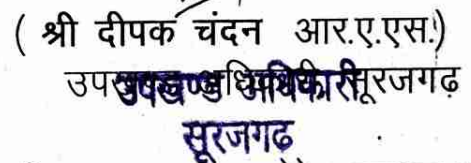 ( श्री दीपक चंदन आर.ए.एस.)
उपखण्ड अधिकारी सूरजगढ़
उपखण्ड अधिकारी
सूरजगढ़